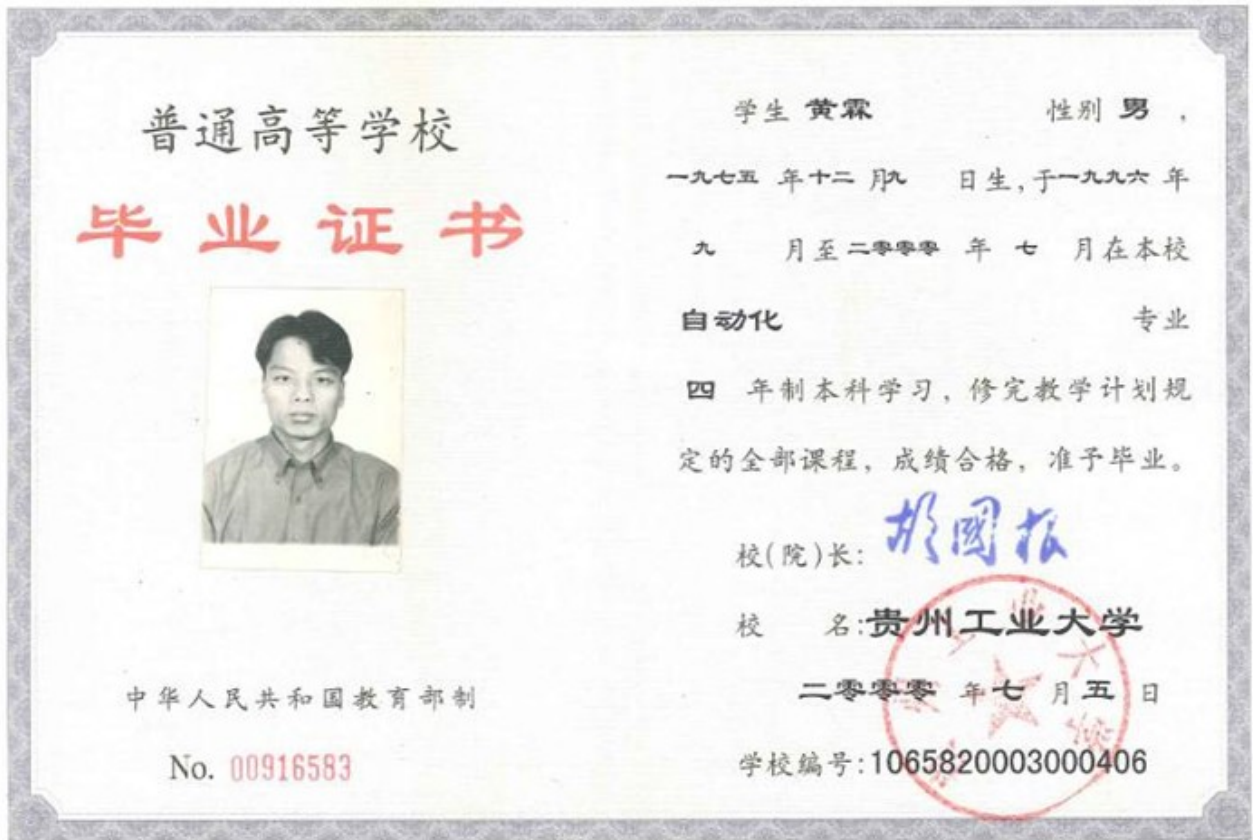 普通高等学校
毕业证书
中华人民共和国教育部制
No. 00916583
学生 黄霖 性别 男，
一九七五 年十二 月九 日生，于一九九六 年
九 月至二零零零 年 七 月在本校
自动化 专业
四 年制本科学习，修完教学计划规
定的全部课程，成绩合格，准予毕业。
校(院)长：
校 名：贵州工业大学
二零零零 年 七 月 五 日
学校编号：1065820003000406